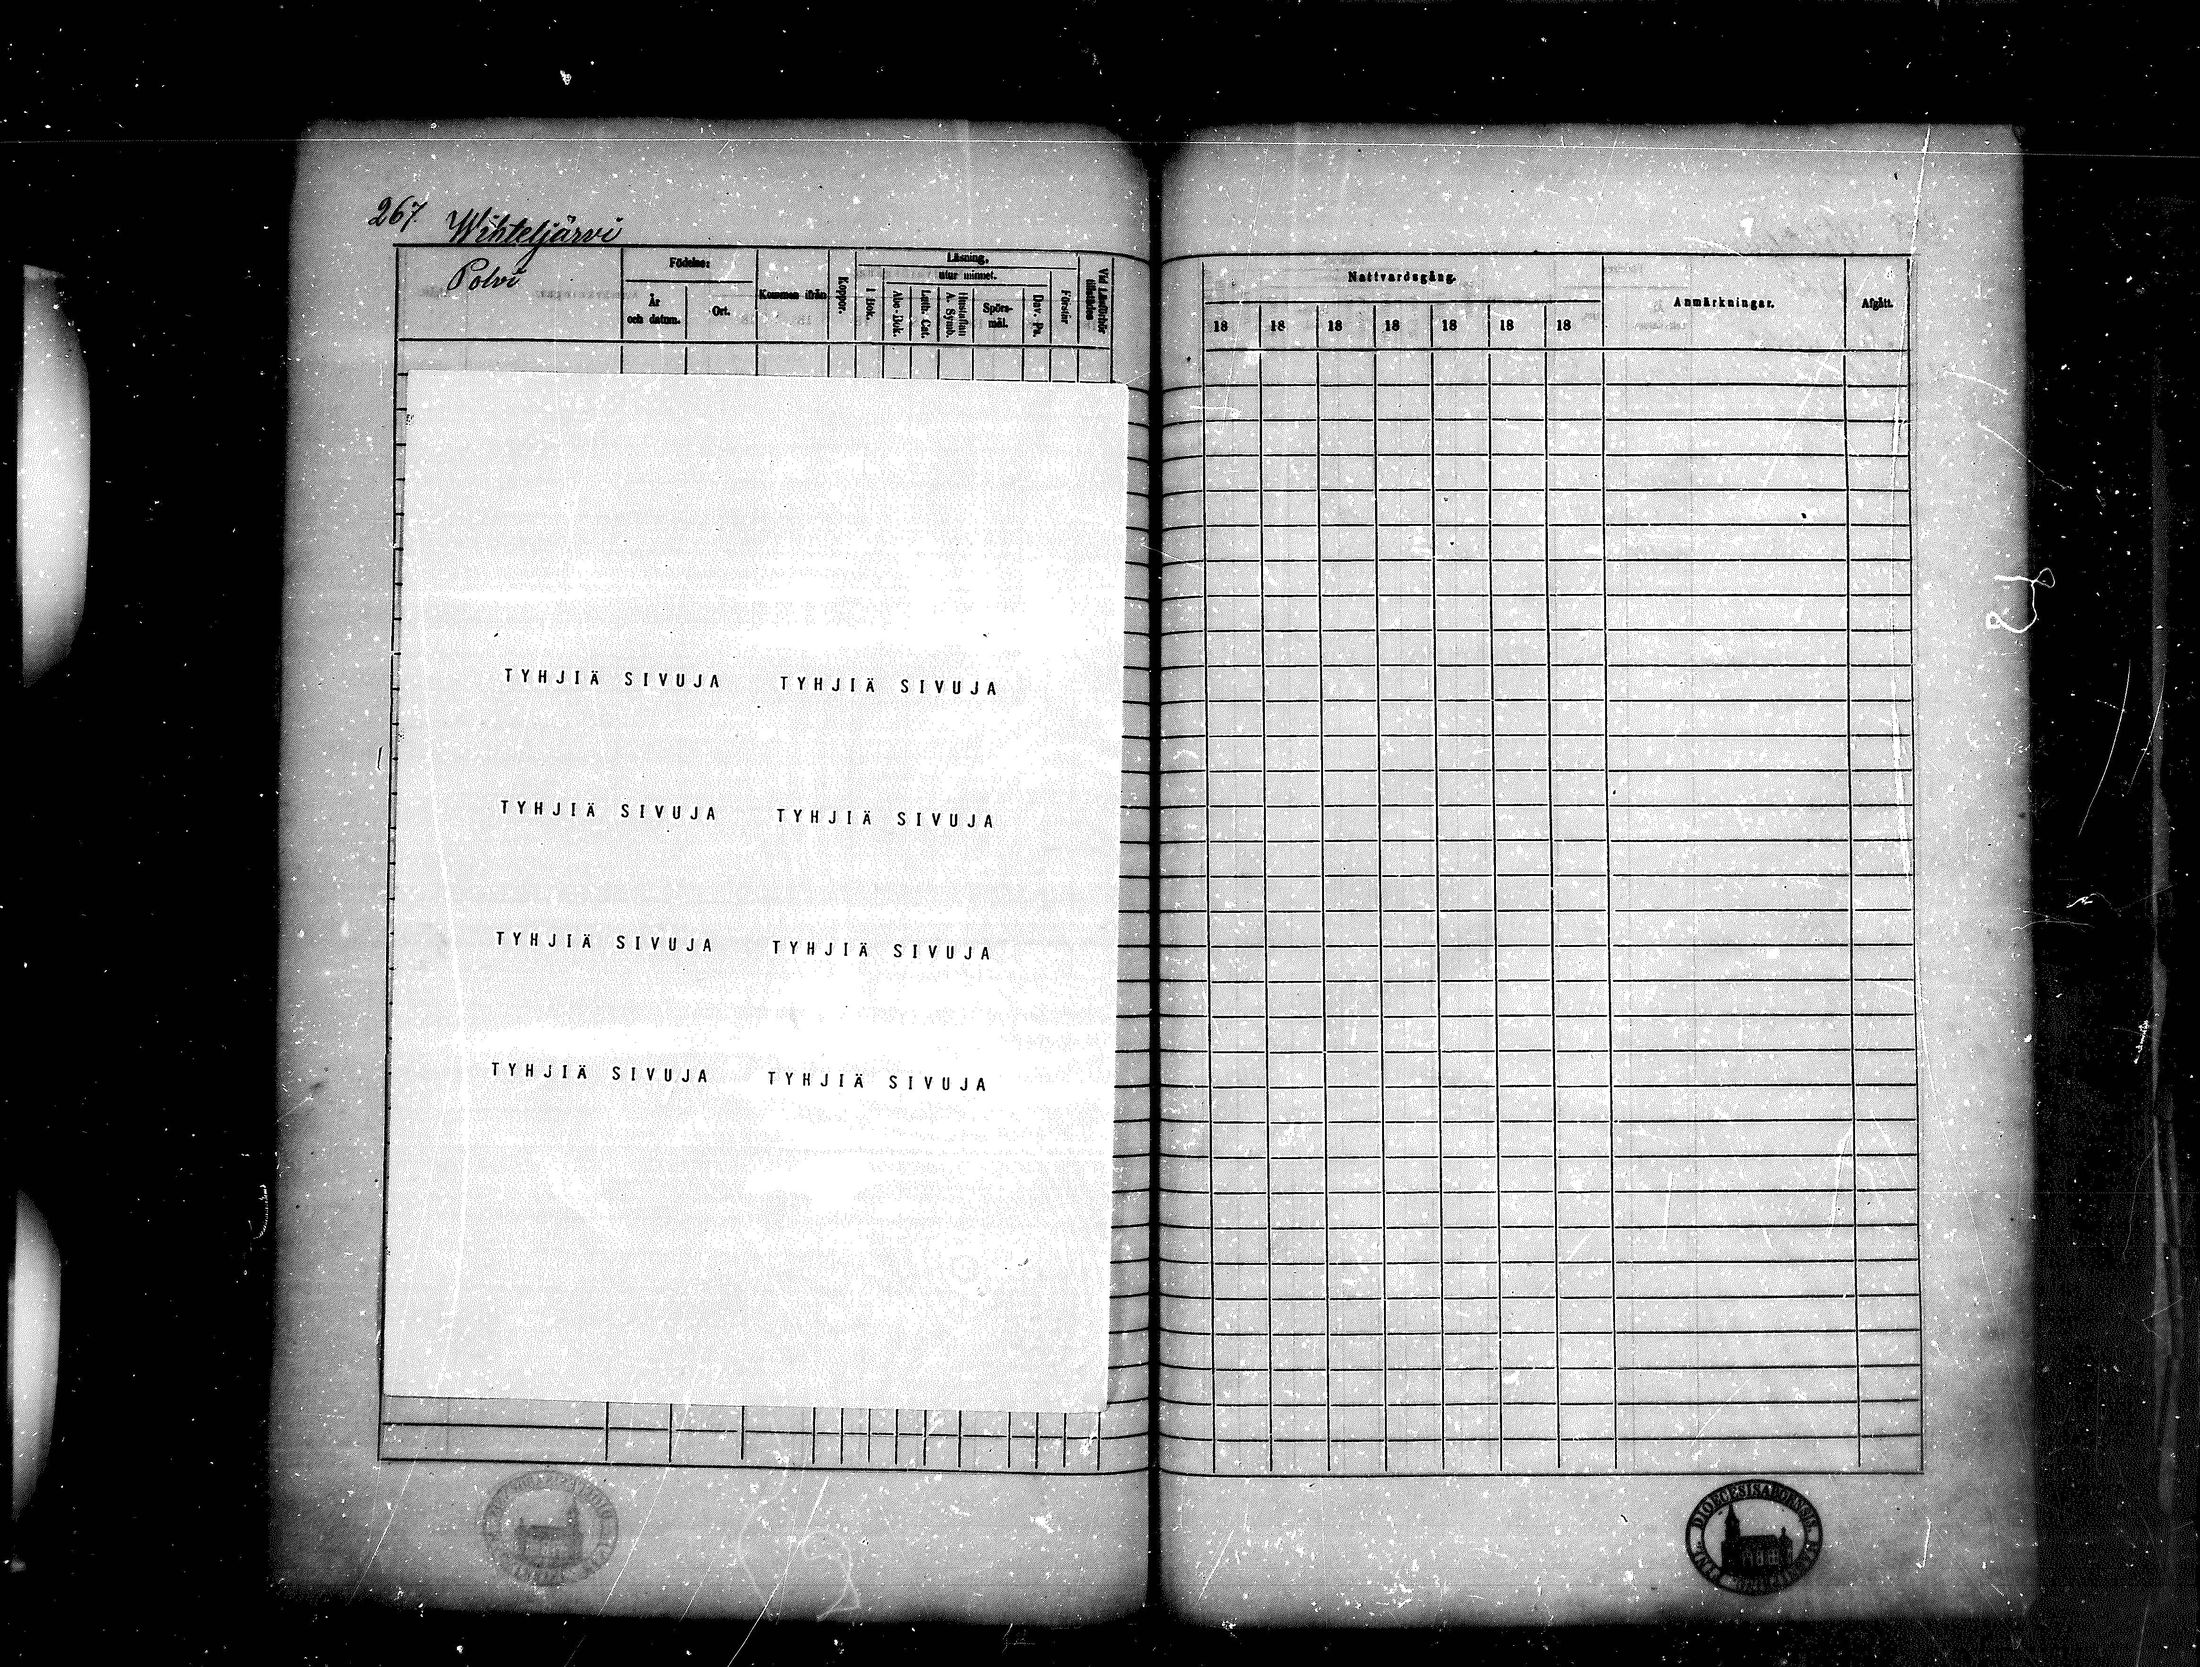 267 Wihteljärvi
Polvi
Födelse:
År
och datum.
Ort.
Kommen ifrån
Koppor.
Läsning.
utur minnet.
I Bok.
Abc-Bok.
Luth. Cat.
Hustaflan
A. Symb.
Spörs-
mål.
Dav. Ps.
Förstår
Vid Läsförhör
Nattvardsgång.
18 18 18 18 18 18 18
Anmärkningar.
Afgått.
TYHJIÄ SIVUJA TYHJIÄ SIVUJA
TYHJIÄ SIVUJA TYHJIÄ SIVUJA
TYHJIÄ SIVUJA TYHJIÄ SIVUJA
TYHJIÄ SIVUJA TYHJIÄ SIVUJA
DIOECESIS ABOENSIS